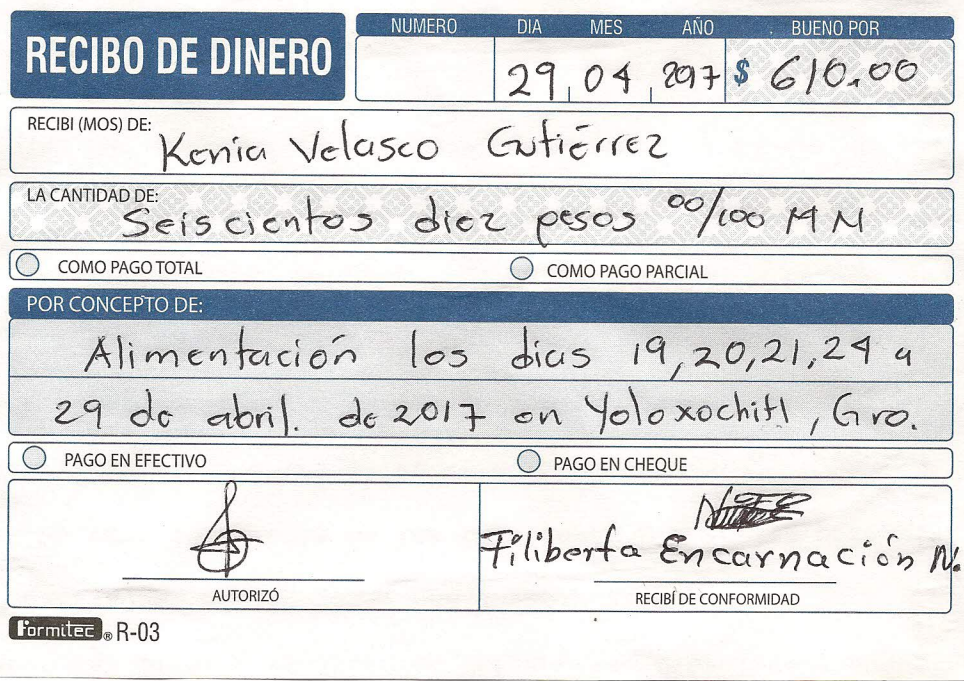 RECIBO DE DINERO
NUMERO DIA MES AÑO BUENO POR
29 04 2017 $ 610.00
RECIBI (MOS) DE: Kenia Velasco Gutiérrez
LA CANTIDAD DE: Seiscientos diez pesos 00/100 M N
COMO PAGO TOTAL COMO PAGO PARCIAL
POR CONCEPTO DE:
Alimentación los dias 19,20,21,24 a
29 de abril. de 2017 en Yoloxochitl, Gro.
PAGO EN EFECTIVO PAGO EN CHEQUE
Filiberta Encarnación N.
AUTORIZÓ RECIBÍ DE CONFORMIDAD
Formitec ® R-03